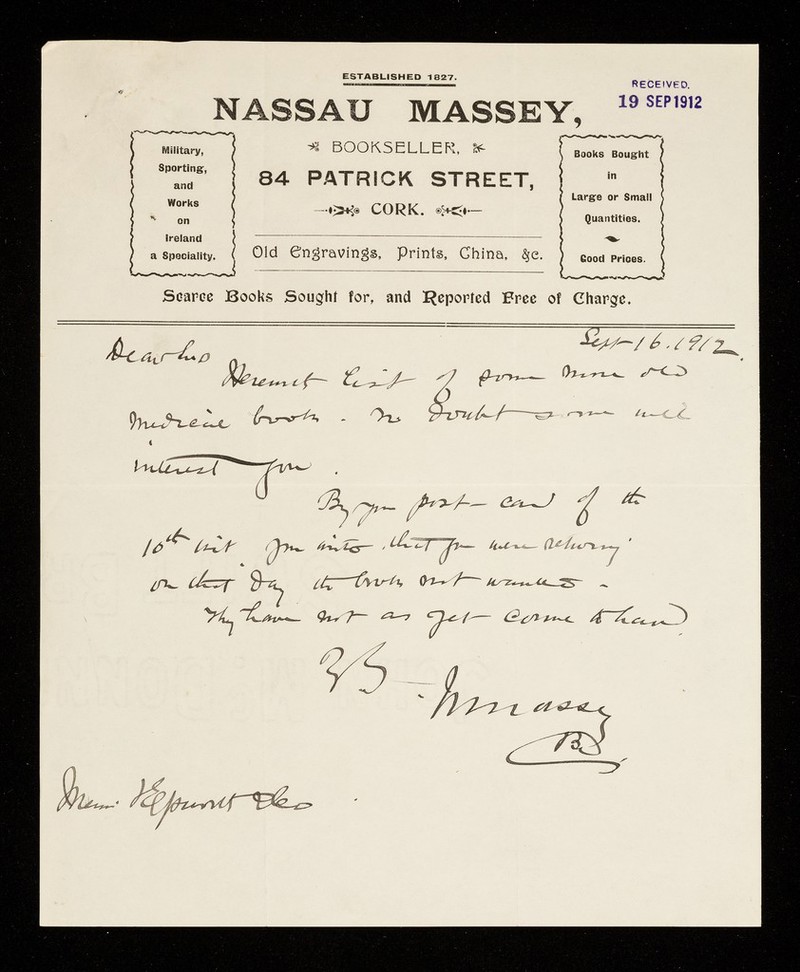 ESTABLISHED 1827.
RECEIVED.
19 SEP 1912
NASSAU MASSEY,
BOOKSELLER,
84 PATRICK STREET,
CORK.
Old Engravings, Prints, China, &c.
Military,
Sporting,
and
Works
on
Ireland
a Speciality.
Books Bought
in
Large or Small
Quantities.
Good Prices.
Scarce Books Sought for, and Reported Free of Charge.
Sept 16. 1912
Dear Sirs
Herewith list of some more old
medical books. No doubt some will
interest you.
By your post card of the
10th inst you write that you were returning
on that day the books not wanted -
They have not as yet come to hand
N Massey